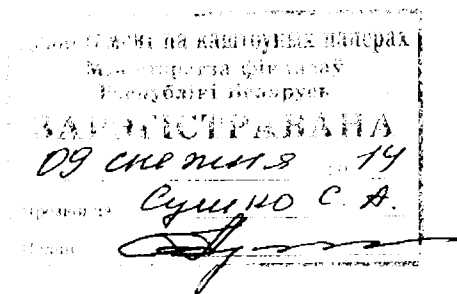 па каштоўных паперах
Міністэрства фінансаў
Рэспублікі Беларусь
ЗАРЭГІСТРАВАНА
09 снежня 14
Сушко С. А.